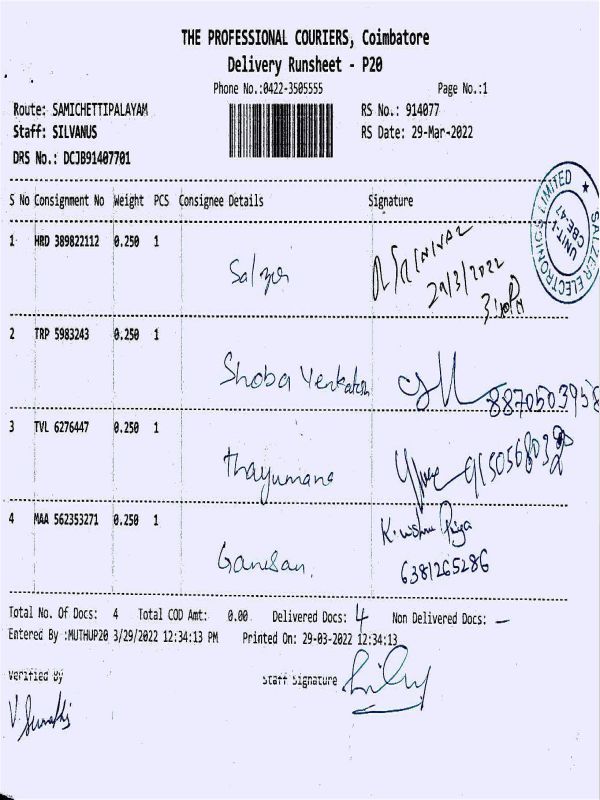 THE PROFESSIONAL COURIERS, Coimbatore
Delivery Runsheet - P20
Phone No.:0422-3505555 Page No.:1
Route: SAMICHETTIPALAYAM RS No.: 914077
Staff: SILVANUS RS Date: 29-Mar-2022
DRS No.: DCJB91407701
S No Consignment No Weight PCS Consignee Details Signature
SALZER ELECTRONICS LIMITED
UNIT-I
CBE-47
1 HRD 389822112 0.250 1
Salzer R SRINIVAS
29/3/2022
3:10PM
2 TRP 5983243 0.250 1
Shoba Venkatesh 8870503958
3 TVL 6276447 0.250 1
Thayumana
4 MAA 562353271 0.250 1
Ganesan. Krishna Priya
6381265286
Total No. Of Docs: 4 Total COD Amt: 0.00 Delivered Docs: 4 Non Delivered Docs: –
Entered By :MUTHUP20 3/29/2022 12:34:13 PM Printed On: 29-03-2022 12:34:13
Verified By Staff Signature